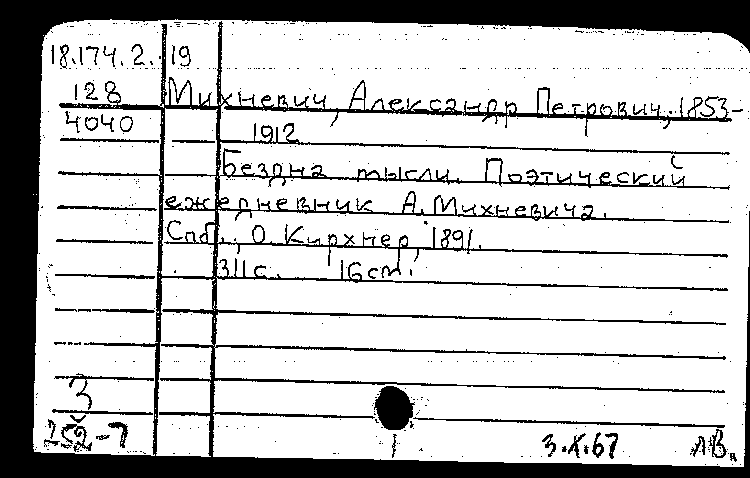 18.174.2. 19
128 Михневич, Александр Петрович, 1853-
4040 1912
Бездна мысли. Поэтический
ежедневник А. Михневича.
Спб., О. Кирхнер, 1891.
311 с. 16 cm.
3
252-7 3.X.67 ЛВ.